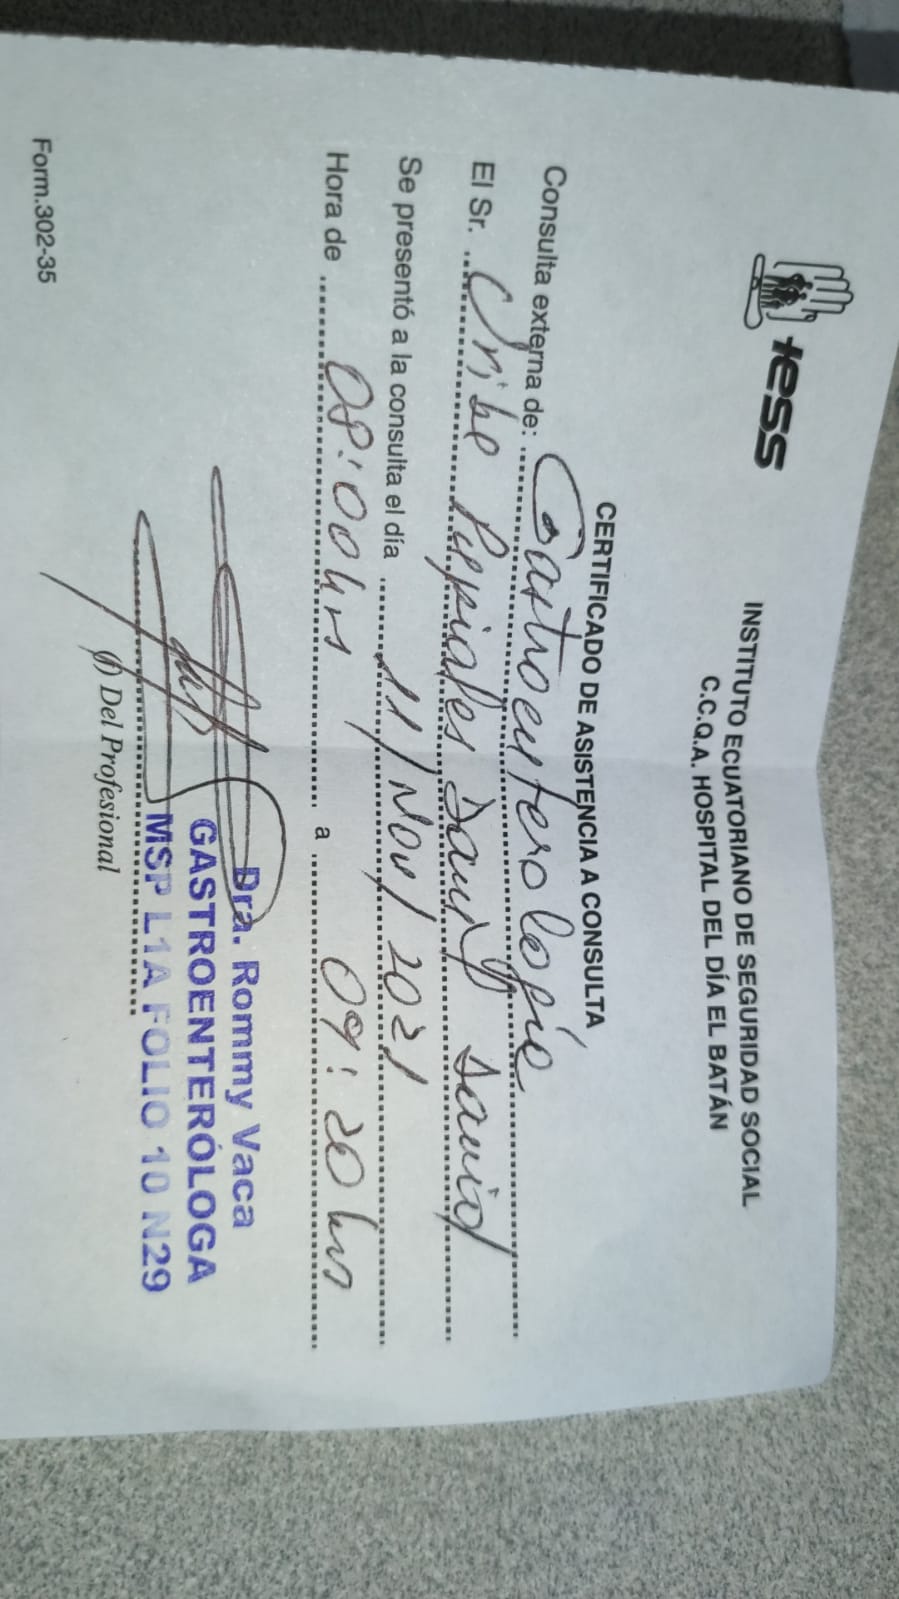 iess
INSTITUTO ECUATORIANO DE SEGURIDAD SOCIAL
C.C.Q.A. HOSPITAL DEL DÍA EL BATÁN
CERTIFICADO DE ASISTENCIA A CONSULTA
Consulta externa de: Gastroenterología
El Sr. Uribe Pupiales Dany David
Se presentó a la consulta el día 11/Nov/2021
Hora de 08:00hrs a 09:20hrs
Dra. Rommy Vaca
GASTROENTERÓLOGA
MSP L1A FOLIO 10 N29
(f) Del Profesional
Form.302-35